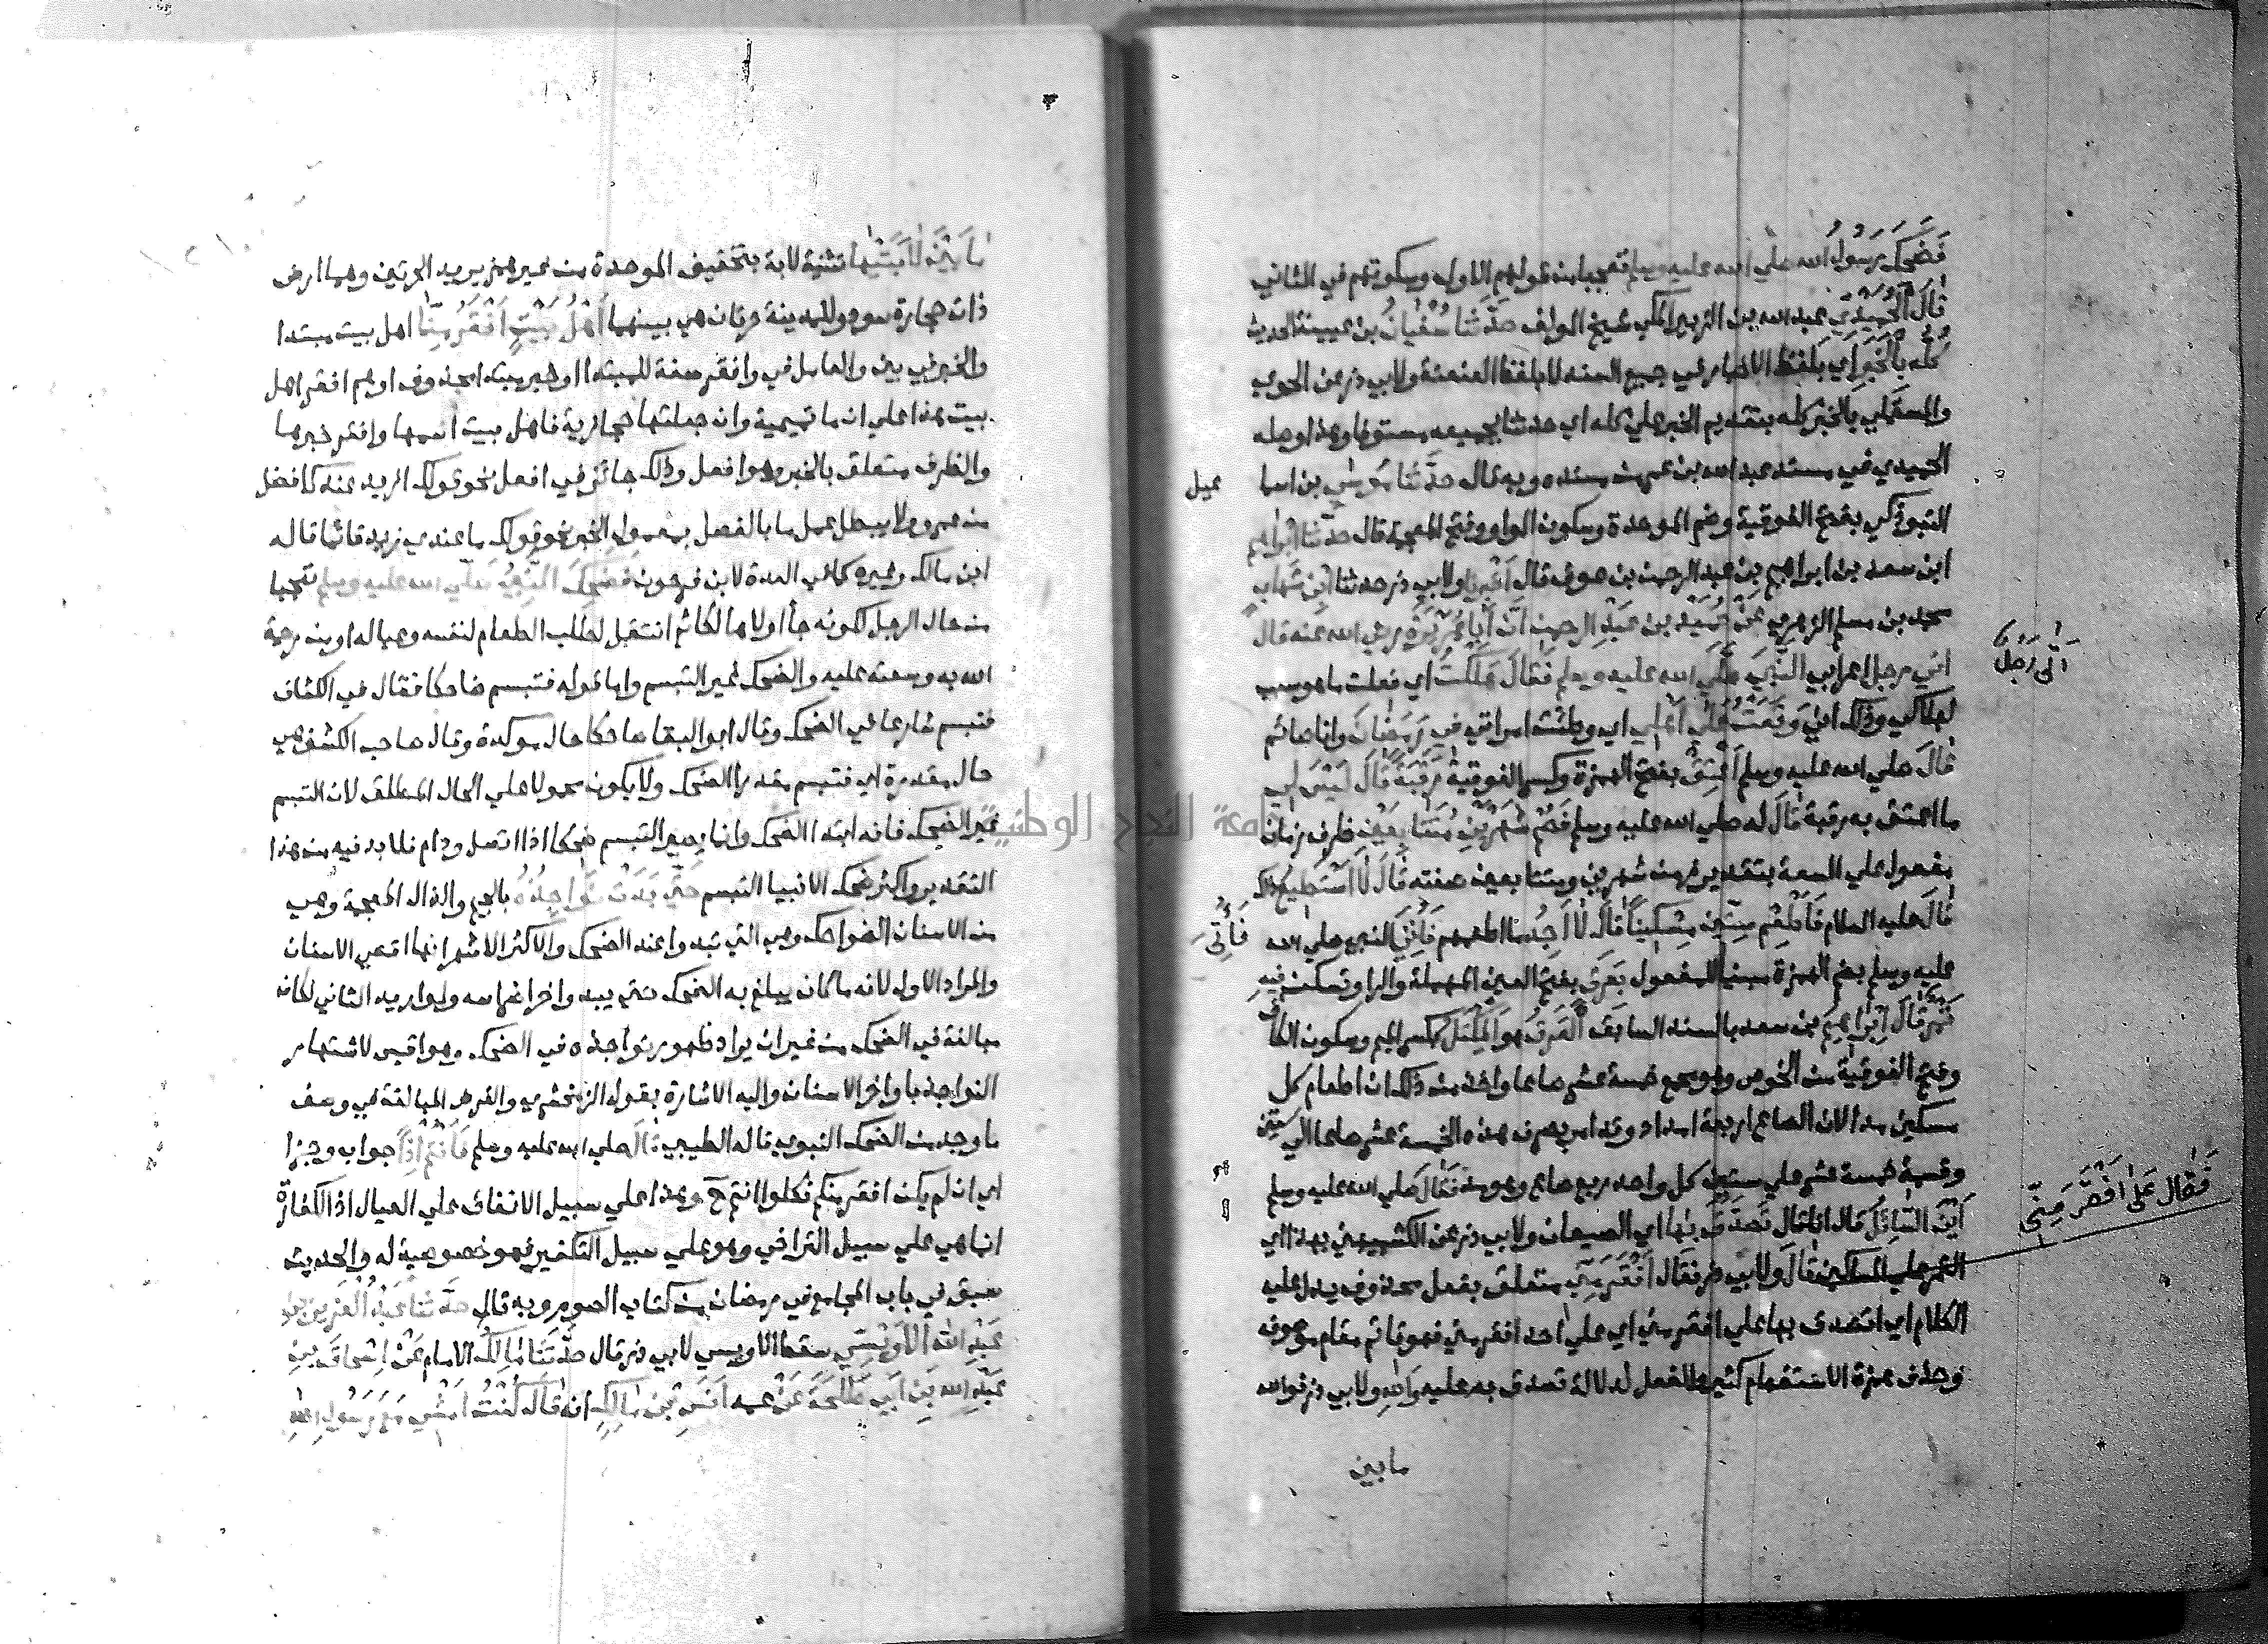 فَضَحِكَ رَسُولُ الله صلي الله عليه وسلم تعجبا من قولهم الاول وسكوتهم في الثاني
قَالَ الْحُمَيْدِيُّ عبد الله بن الزبير المكي شيخ المولف حَدَّثَنَا سُفْيَانُ بن عيينة الحديث
كُلَّه بِالْخَبَرِ اي بلفظ الاخبار في جميع السند لا بلفظ العنعنة ولابي ذر عن الحموي
والمستملي بالخبر كله بتقديم الخبر علي كله اي حدثنا بجميعه مستوفا وهذا وصله
الحميدي في مسند عبد الله بن عمر من مسنده وبه قال حدَّثنا مُوسَي بن اسما
عيل
التبوذكي بفتح الفوقية وضم الموحدة وسكون الواو وفتح المعجمة قال حدثنا ابراهيم
ابن سعد بن ابراهيم بن عبد الرحمن بن عوف قال اَخْبرنا ولابي ذر حدثنا ابْن شهَاب
محمد بن مسلم الزهري عَنْ حُمَيْد بن عَبْدِ الرحمن اَنَّ اَبَا هُرَيْرَةَ رضي الله عنه قال
اَتَى رَجُلٌ
اتي رجل اعرابي النَّبِيَّ صَلَّي الله عليه وسلم فَقَالَ هَلَكْتُ اي فعلت ما هو سبب
لهلاكي وذلك اني وَقَعْتُ عَلَي اَهْلِي اي وطئت امراتي في رَمَضَانَ وانا صائم
قَالَ صلي الله عليه وسلم اَعْتِقْ بفتح الهمزة وكسر الفوقية رَقَبَةً قَالَ لَيْسَ لِي
ما اعتق به رقبة قَالَ له صلي الله عليه وسلم فَصُمْ شَهْرَيْنِ مُتَتَابِعَيْنِ ظرف زمان
مفعول علي السعة بتقدير زمن شهرين ومتتابعين صفته قَالَ لَا اَسْتَطِيعُ ذلك
قَالَ عليه السلام فَاَطْعِمْ سِتِّينَ مِسْكِينًا قَالَ لَا اَجِدُ ما اطعمهم فَاُتِيَ النبي صلي الله
فَاُتِيَ
عليه وسلم بضم الهمزة مبنيا للمفعول بَعَرَقٍ بفتح العين المهملة والرا وتسكن فِيهِ
تَمْرٌ قَالَ اِبْرَاهِيمُ بن سعد بالسند السابق الْعَرَقُ هُوَ الْمِكْتَلُ بكسر الميم وسكون الكاف
وفتح الفوقية من الخوص وهو يجمع خمسة عشر صاعا واخذ من ذلك ان اطعام كل
مسكين مد لان الصاع اربعة امداد وقد امر بصرف هذه الخمسة عشر صاعا الي ستين
وقسمة خمسة عشر علي ستين كل واحد ربع صاع وهو مد فَقَالَ صَلي الله عليه وسلم
اَيْنَ السَّائِلُ قال انا قال تَصَدَّقْ بِهَا اي الصيعان ولابي ذر عن الكشميهني بهذا اي
التمر علي المساكين قَالَ ولابي ذر فقال اَفْقَرَ مِنِّي متعلق بفعل محذوف يدل عليه
فَقَالَ عَلَى اَفْقَرَ مِنِّي
الكلام اي اتصدق بها علي افقر مني اي علي احد افقر مني فهو قائم مقام موصوفه
وحذف همزة الاستفهام كثير والفعل لدلالة تصدق به عليه وَاللهِ ولابي ذر فوالله
ما بين
مَا بَيْنَ لَابَتَيْهَا تثنية لابة بتخفيف الموحدة من غير همز يريد الحرتين وهما ارض
ذات حجارة سود وللمدينة حرتان هي بينهما اَهْلُ بَيْتٍ اَفْقَرُ مِنَّا اهل بيت مبتدا
والخبر في بين والعامل في وافقر صفة للمبتدا او خبر مبتدا محذوف اي هم افقر اهل
بيت هذا علي ان ما تميمية وان جعلتها حجازية فاهل بيت اسمها وافقر خبرها
والظرف متعلق بالخبر وهو افعل وذلك جائز في افعل نحو قولك ازيد عندك افضل
من عمرو ولا يبطل عمل ما بالفصل بمعمول الخبر نحو قولك ما عندي زيد قائما قاله
ابن مالك وغيره كما في العدة لابن فرحون فَضَحِكَ النَّبِيُّ صَلَّي الله عليه وسلم تعجبا
من حال الرجل لكونه جأ اولا هالكا ثم انتقل لطلب الطعام لنفسه وعياله او من رحمة
الله به وسعته عليه والضحك غير التبسم واما قوله فتبسم ضاحكا فقال في الكشاف
فتبسم شارعا في الضحك وقال ابو البقا ضاحكا حال موكدة وقال صاحب الكشف هي
حال مقدرة اي فتبسم مقدرا الضحك ولا يكون محمولا علي الحال المطلق لان التبسم
غير الضحك فانه ابتدا الضحك وانما يصير التبسم ضحكا اذا اتصل ودام فلا بد فيه من هذا
التقدير واكثر ضحك الانبيا التبسم حَتَّي بَدَتْ نَوَاجِذُهُ بالجيم والذال المعجمة وهي
من الاسنان الضواحك وهي التي تبدوا عند الضحك والاكثر الاشهر انها اقصي الاسنان
والمراد الاول لانه ما كان يبلغ به الضحك حتي يبدو اخر اضراسه ولو اريد الثاني لكان
مبالغة في الضحك من غير ان يراد ظهور نواجذه في الضحك وهو اقيس لاشتهار
النواجذ باواخر الاسنان واليه الاشارة بقول الزمخشري والغرض المبالغة في وصف
ما وجد من الضحك النبوي قاله الطيبي قَالَ صلي الله عليه وسلم فَاَنْتُمْ اِذًا جواب وجزا
اي ان لم يكن افقر منكم فكلوا انتم ح وهذا علي سبيل الانفاق علي العيال اذ الكفارة
انما هي علي سبيل التراخي وهو علي سبيل التكفير فهو خصوصية له والحديث
سبق في باب المجامع في رمضان من كتاب الصوم وبه قال حدَّثنا عَبْدُ الْعَزِيزِ بْنُ
عَبْدِ الله الْاُوَيْسِيُّ سقط الاويسي لابي ذر قال حَدَّثَنَا مَالِكٌ الامام عَنْ اِسْحَاقَ بْنِ
عَبْدِ الله بْنِ اَبِي طَلْحَةَ عَنْ عمه اَنَسِ بْنِ مَالِكٍ انه قَالَ كُنْتُ اَمْشِي مَعَ رَسُولِ اللهِ
جامعة النجاح الوطنية